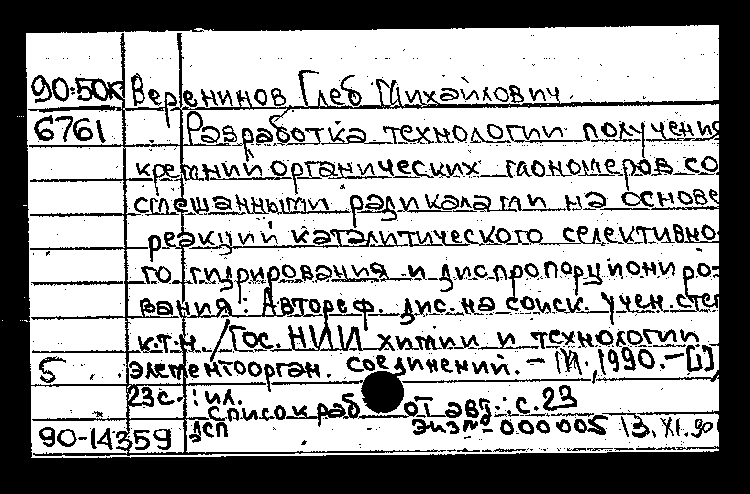 90-50к Веренинов Глеб Михайлович
6761 Разработка технологии получения
кремнийорганических мономеров со
смешанными радикалами на основе
реакций каталитического селективно-
го гидрирования и диспропорциониро-
вания: Автореф. дис. на соиск. учен. степ
к.т.н. /Гос. НИИ химии и технологии
5 элементоорган. соединений. - М., 1990. - [1],
23с. : ил.
Список раб от авт.: с. 23
90-14359 ДСП Экз № 000005 13.XI.90